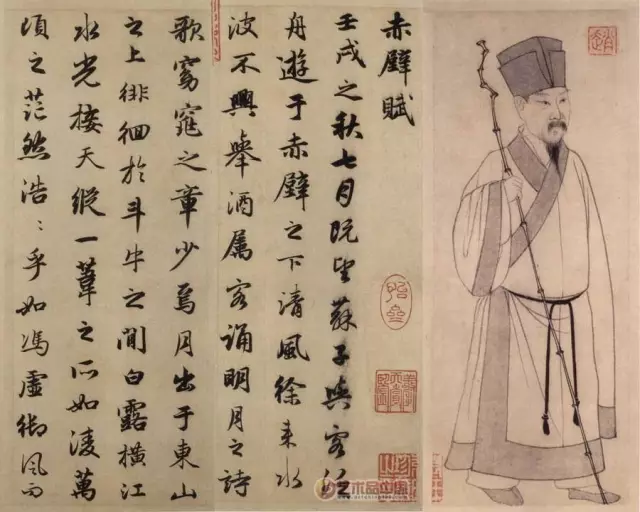 赤壁賦
壬戌之秋七月既望蘇子與客泛
舟遊于赤壁之下清風徐来水
波不興舉酒属客誦明月之詩
歌窈窕之章少焉月出于東山
之上徘徊於斗牛之間白露橫江
水光接天縱一葦之所如淩萬
頃之茫然浩〻乎如馮虛御風而